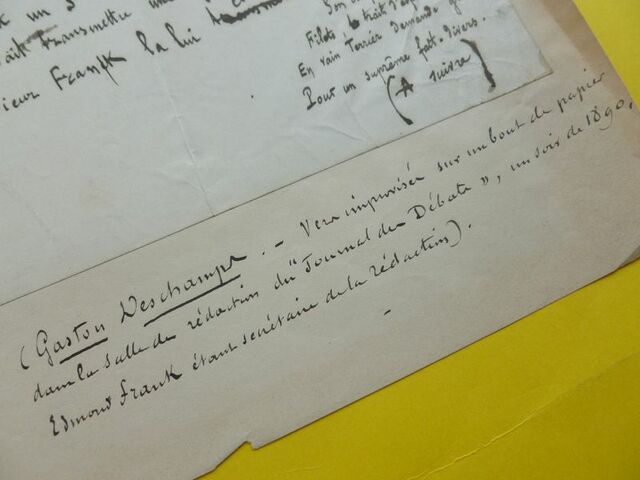 transmettre une
Franck la lui
Filets
En vain Terrier Demande
Pour un suprême fait-divers.
(A suivre)
(Gaston Deschamps. - Vers improvisés sur un bout de papier
dans la salle de rédaction du "Journal des Débats", un soir de 1890,
Edmond Frank étant secrétaire de la rédaction).